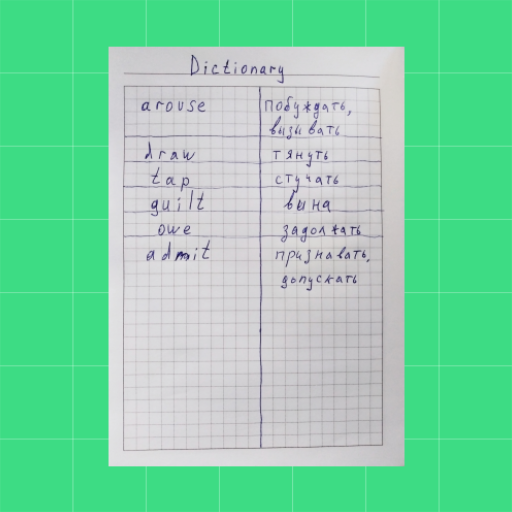 Dictionary
arouse побуждать,
вызывать
draw тянуть
tap стучать
guilt вына
owe задолжать
admit признавать,
допускать